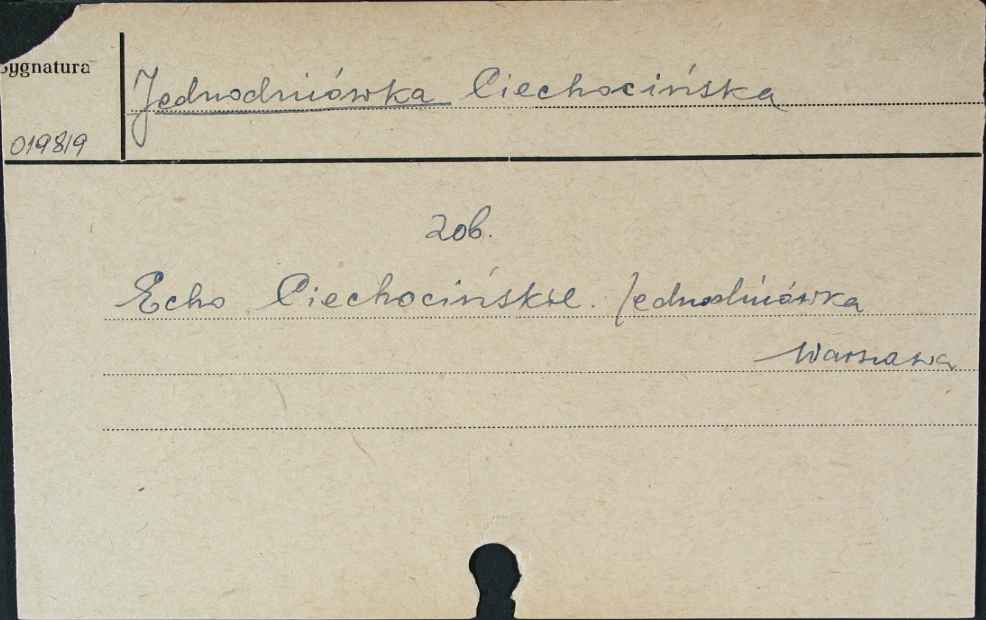 Sygnatura
Jednodniówka Ciechocińska
019819
zob.
Echo Ciechocińskie. Jednodniówka
Warszawa